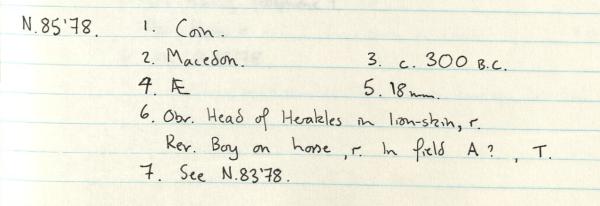 N.85'78. 1. Coin.
2. Macedon. 3. c. 300 B.C.
4. Æ 5. 18mm.
6. Obv. Head of Herakles in lion-skin, r.
Rev. Boy on horse, r. In field A?, T.
7. See N.83'78.